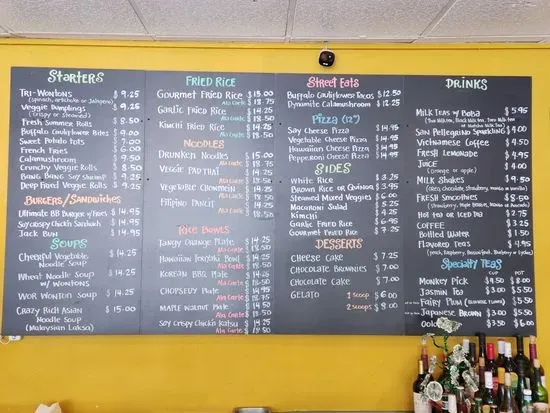 Starters
Tri-Wontons $9.25
(spinach, artichoke or jalapeno)
Veggie Dumplings $9.25
(crispy or steamed)
Fresh Summer Rolls $8.50
Buffalo Cauliflower Bites $9.00
Sweet Potato Tots $7.00
French Fries $6.00
Calamushroom $9.50
Crunchy Veggie Rolls $8.50
Bang Bang Soy Shrimp
Deep Fried Veggie Rolls $9.25
Burgers/Sandwiches
Ultimate BB Burger w/Fries $14.95
Soy Crispy Chick'n Sandwich $14.95
Jack Buh $14.95
Soups
Cheerful Vegetable $14.25
Noodle Soup
Wheat Noodle Soup $14.25
w/ Wontons
Wor Wonton Soup $14.25
Crazy Rich Asian $15.00
Noodle Soup
(Malaysian Laksa)
Fried Rice
Gourmet Fried Rice $15.00
Ala Carte $18.75
Garlic Fried Rice $14.25
Ala Carte $18.50
Kimchi Fried Rice $14.25
Ala Carte $18.50
Noodles
Drunken Noodles $15.00
Ala Carte $18.75
Veggie Pad Thai $14.25
Ala Carte $18.50
Vegetable Chowmein $14.25
Ala Carte $18.50
Filipino Pancit $14.25
Ala Carte $18.50
Rice Bowls
Tangy Orange Plate $14.25
Ala Carte
Hawaiian Teriyaki Bowl $14.25
Ala Carte
Korean BBQ Plate $14.25
Ala Carte
Chopsuey Plate $14.95
Ala Carte
Maple Walnut Plate $14.25
Ala Carte
Soy Crispy Chick'n Katsu $14.25
Ala Carte $18.50
Street Eats
Buffalo Cauliflower Tacos $12.50
Dynamite Calamushroom $12.25
Pizza (12")
Say Cheese Pizza $14.95
Vegetable Cheese Pizza $14.95
Hawaiian Cheese Pizza $14.95
Pepperoni Cheese Pizza $14.95
Sides
White Rice $3.25
Brown Rice or Quinoa $3.95
Steamed Mixed Veggies $6.00
Macaroni Salad $5.25
Kimchi $4.25
Garlic Fried Rice $6.95
Gourmet Fried Rice $7.25
Desserts
Cheese Cake $7.25
Chocolate Brownies $7.00
Chocolate Cake $7.00
Gelato 1 scoop $6.00
2 scoops $8.00
Drinks
Milk Teas w/ Boba $5.95
San Pellegrino Sparkling $4.00
Vietnamese Coffee $4.50
Fresh Lemonade $4.95
Juice $4.00
(orange or apple)
Milk Shakes $9.50
(oreo, chocolate, strawberry, mocha or vanilla)
Fresh Smoothies $8.50
Hot Tea or Iced Tea $2.75
Coffee $3.25
Bottled Water $1.50
Flavored Teas $4.95
(peach, Raspberry, Passionfruit, Blueberry or Lychee)
Specialty Teas
Cup Pot
Monkey Pick $4.50 $8.00
Jasmin Tea $3.00 $5.50
Fairy Plum $3.50 $5.50
Japanese Brown $3.00 $5.50
Oolong $3.50 $6.00